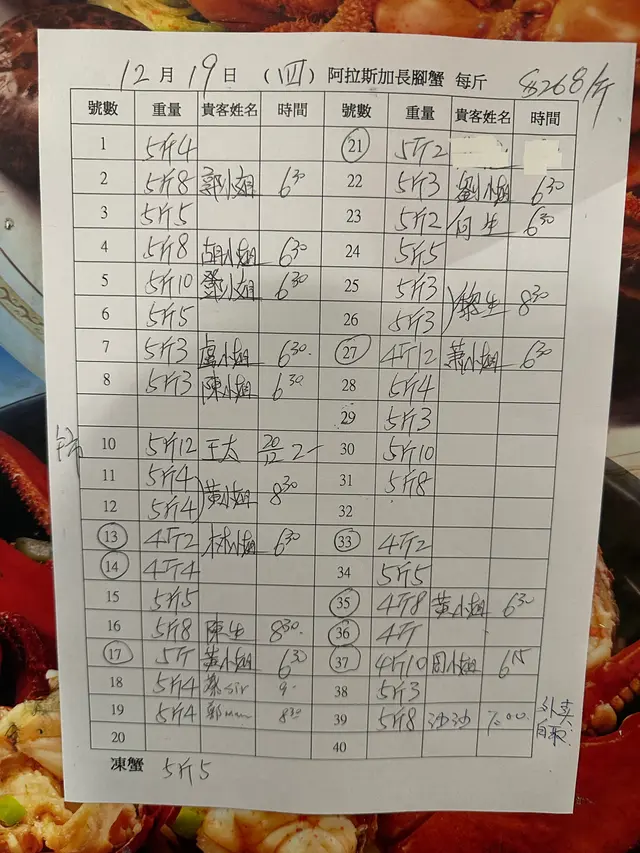 12月19日（四）阿拉斯加長腳蟹 每斤 $268/斤
號數 重量 貴客姓名 時間 號數 重量 貴客姓名 時間
1 5斤4 21 5斤2
2 5斤8 郭小姐 630 22 5斤3 劉小姐 630
3 5斤5 23 5斤2 何生 630
4 5斤8 胡小姐 630 24 5斤5
5 5斤10 鄧小姐 630 25 5斤3 黎生 830
6 5斤5 26 5斤3
7 5斤3 盧小姐 630 27 4斤12 蕭小姐 630
8 5斤3 陳小姐 630 28 5斤4
29 5斤3
10 5斤12 王太 20/12 30 5斤10
11 5斤4 黃小姐 830 31 5斤8
12 5斤4 32
13 4斤2 林小姐 630 33 4斤2
14 4斤4 34 5斤5
15 5斤5 35 4斤8 黃小姐 630
16 5斤8 陳生 830 36 4斤
17 5斤 黃小姐 630 37 4斤10 周小姐 615
18 5斤4 蔡sir 9 38 5斤3
19 5斤4 鄭mam 830 39 5斤8 沙沙 7:00 外卖自取
20 40
凍蟹 5斤5